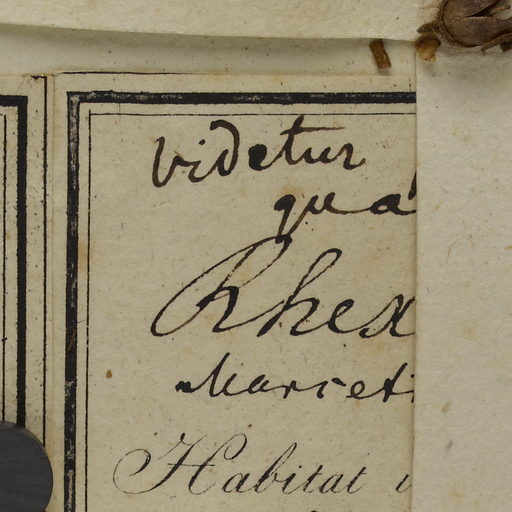 videtur
qua
Rhex
Marcet
Habitat